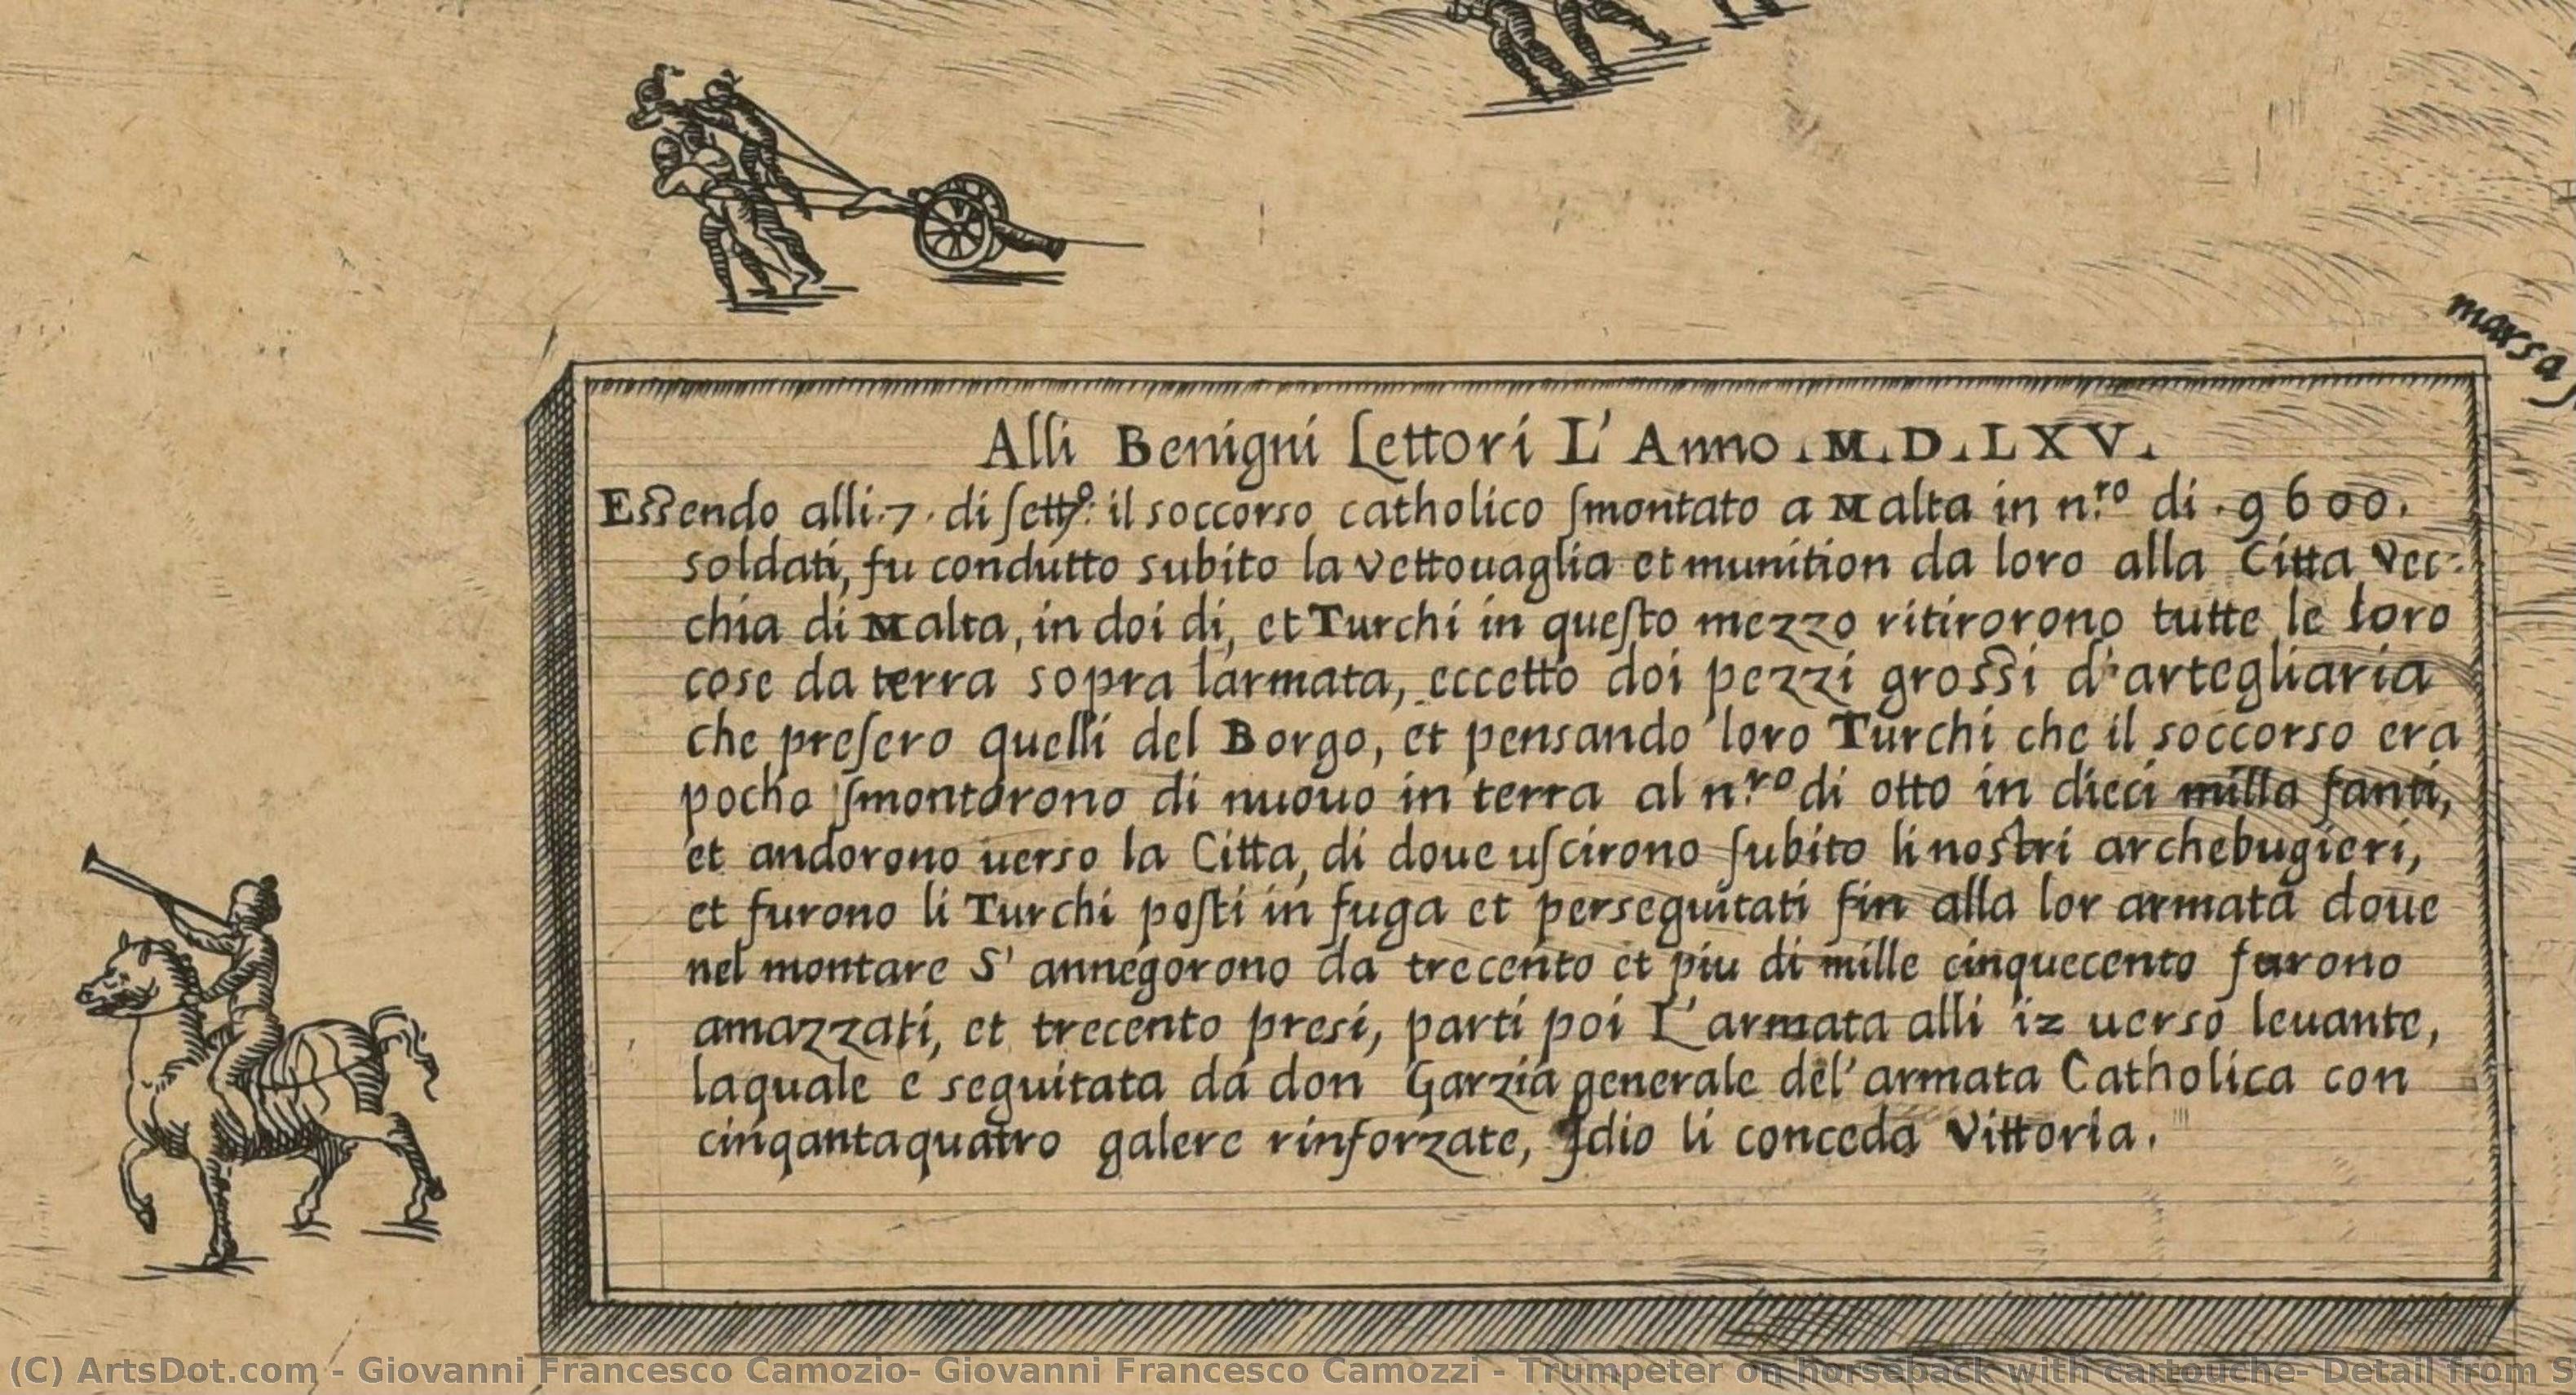 marsa
Alli Benigni Lettori L' Anno .M.D.LXV.
Eſſendo alli .7. di ſettº: il soccorso catholico ſmontato a Malta in n.ro di .9600.
soldati, fu condutto subito la vettouaglia et munition da loro alla Citta Vec-
chia di Malta, in doi di, et Turchi in queſto mezzo ritirorono tutte le loro
cose da terra sopra l'armata, eccetto doi pezzi groſſi d'artegliaria
che preſero quelli del Borgo, et pensando loro Turchi che il soccorso era
pocho ſmontorono di nuouo in terra al n.ro di otto in dieci milla fanti,
et andorono uerso la Citta, di doue uſcirono ſubito li nostri archebugieri,
et furono li Turchi poſti in fuga et perseguitati fin alla lor armata doue
nel montare S' annegorono da trecento et piu di mille cinquecento furono
amazzati, et trecento presi, parti poi L'armata alli iz uerso leuante,
laquale e seguitata da don Garzia generale del'armata Catholica con
cinqantaquatro galere rinforzate, Idio li conceda Vittoria.
(C) ArtsDot.com - Giovanni Francesco Camozio- Giovanni Francesco Camozzi - Trumpeter on horseback with cartouche- Detail from S